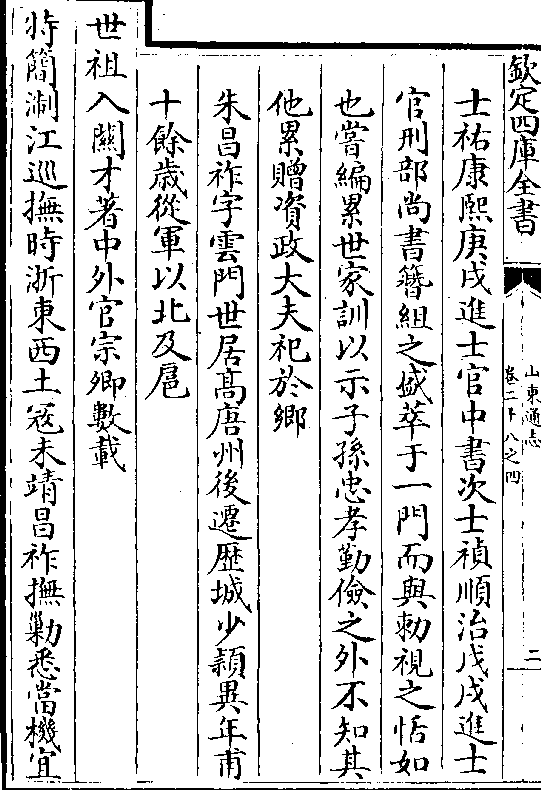 欽定四庫全書
山東通志
卷二十八之四
二
士祐康熙庚戌進士官中書次士禎順治戊戌進士
官刑部尚書簪組之盛萃于一門而與勑視之恬如
也嘗編累世家訓以示子孫忠孝勤儉之外不知其
他累贈資政大夫祀於鄉
朱昌祚字雲門世居髙唐州後遷歴城少穎異年甫
十餘歲從軍以北及扈
世祖入關才著中外官宗卿數載
特簡淛江巡撫時浙東西土冦未靖昌祚撫勦悉當機宜